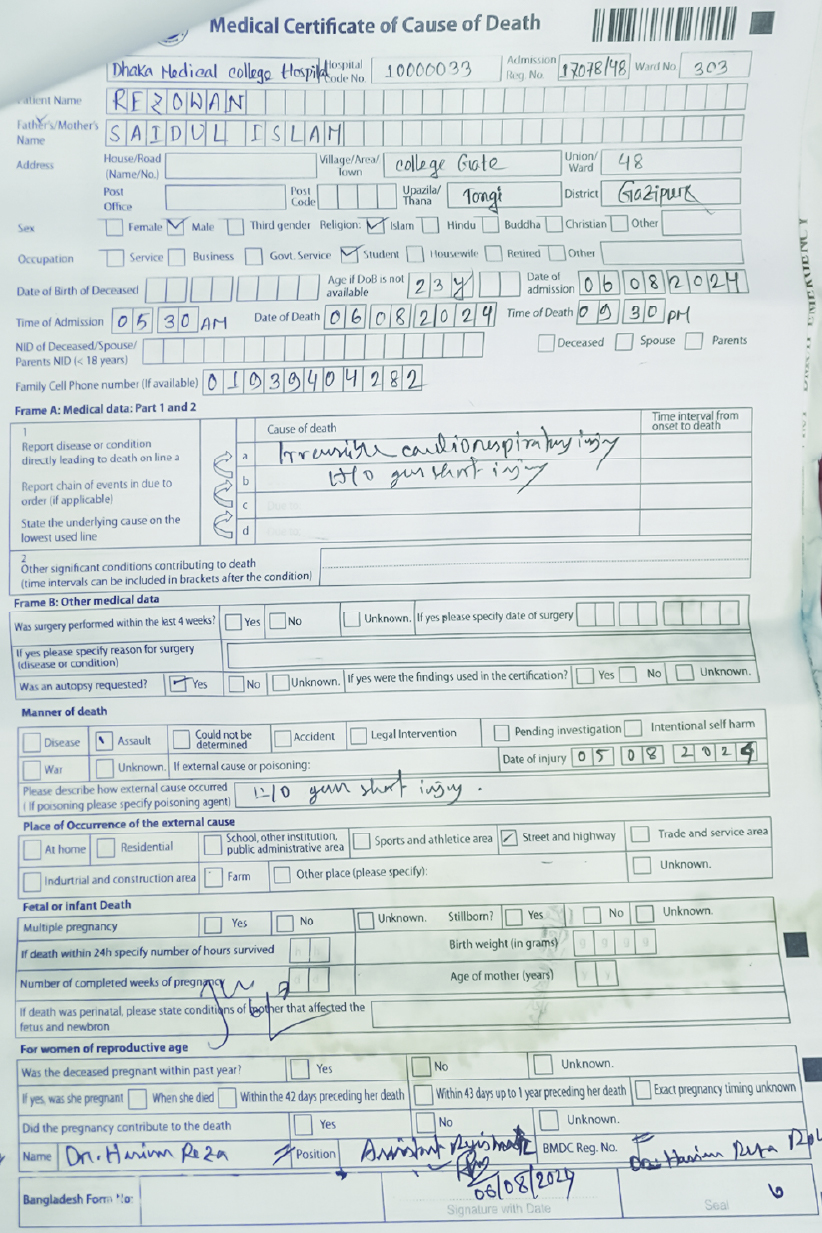 Medical Certificate of Cause of Death
Dhaka Medical college Hospital Hospital Code No. 10000033 Admission Reg. No. 17078/48 Ward No. 303
Patient Name REZOWAN
Father's/Mother's Name SAIDUL ISLAM
Address House/Road (Name/No.) Village/Area/Town college Gate Union/Ward 48
Post Office Post Code Upazila/Thana Tongi District Gazipur
Sex Female Male Third gender Religion: Islam Hindu Buddha Christian Other
Occupation Service Business Govt. Service Student Housewife Retired Other
Date of Birth of Deceased Age if DoB is not available 23y Date of admission 06082024
Time of Admission 05 30 AM Date of Death 06082024 Time of Death 09 30 PM
NID of Deceased/Spouse/Parents NID (< 18 years) Deceased Spouse Parents
Family Cell Phone number (If available) 01939404282
Frame A: Medical data: Part 1 and 2
1 Cause of death Time interval from onset to death
Report disease or condition directly leading to death on line a
a cardiorespiratory injury
Report chain of events in due to order (if applicable)
b H/O gun short injury
c
State the underlying cause on the lowest used line
d
2
Other significant conditions contributing to death
(time intervals can be included in brackets after the condition)
Frame B: Other medical data
Was surgery performed within the last 4 weeks? Yes No Unknown. If yes please specify date of surgery
If yes please specify reason for surgery
(disease or condition)
Was an autopsy requested? Yes No Unknown. If yes were the findings used in the certification? Yes No Unknown.
Manner of death
Disease Assault Could not be determined Accident Legal Intervention Pending investigation Intentional self harm
War Unknown. If external cause or poisoning: Date of injury 05 08 2024
Please describe how external cause occurred
( If poisoning please specify poisoning agent) H/O gun short injury.
Place of Occurrence of the external cause
At home Residential School, other institution, public administrative area Sports and athletice area Street and highway Trade and service area
Indurtrial and construction area Farm Other place (please specify): Unknown.
Fetal or Infant Death
Multiple pregnancy Yes No Unknown. Stillborn? Yes No Unknown.
If death within 24h specify number of hours survived Birth weight (in grams)
Number of completed weeks of pregnancy Age of mother (years)
If death was perinatal, please state conditions of mother that affected the
fetus and newbron
For women of reproductive age
Was the deceased pregnant within past year? Yes No Unknown.
If yes, was she pregnant When she died Within the 42 days preceding her death Within 43 days up to 1 year preceding her death Exact pregnancy timing unknown
Did the pregnancy contribute to the death Yes No Unknown.
Name Position Assistant Registrar BMDC Reg. No.
06/08/2024
Bangladesh Form No: Signature with Date Seal